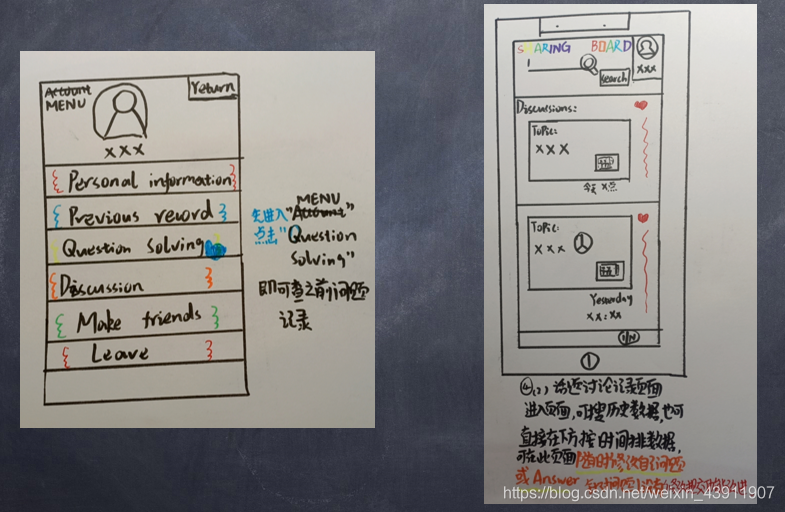 Account
MENU
Yeturn
×××
Personal information
Previous record
Question solving
Discussion
Make friends
Leave
MENU
先进入"Account"
点击"Question
Solving"
即可查之前问题
记录
SHARING BOARD
search
×××
Discussions:
Topic:
×××
今天 ×点
Topic:
×××
Yesterday
××:××
1/N
④(2) 话题讨论记录页面
进入页面,可搜历史数据,也可
直接在下方按时间排数据,
可在此页面随时修改自己问题
或 Answer
https://blog.csdn.net/weixin_43911907